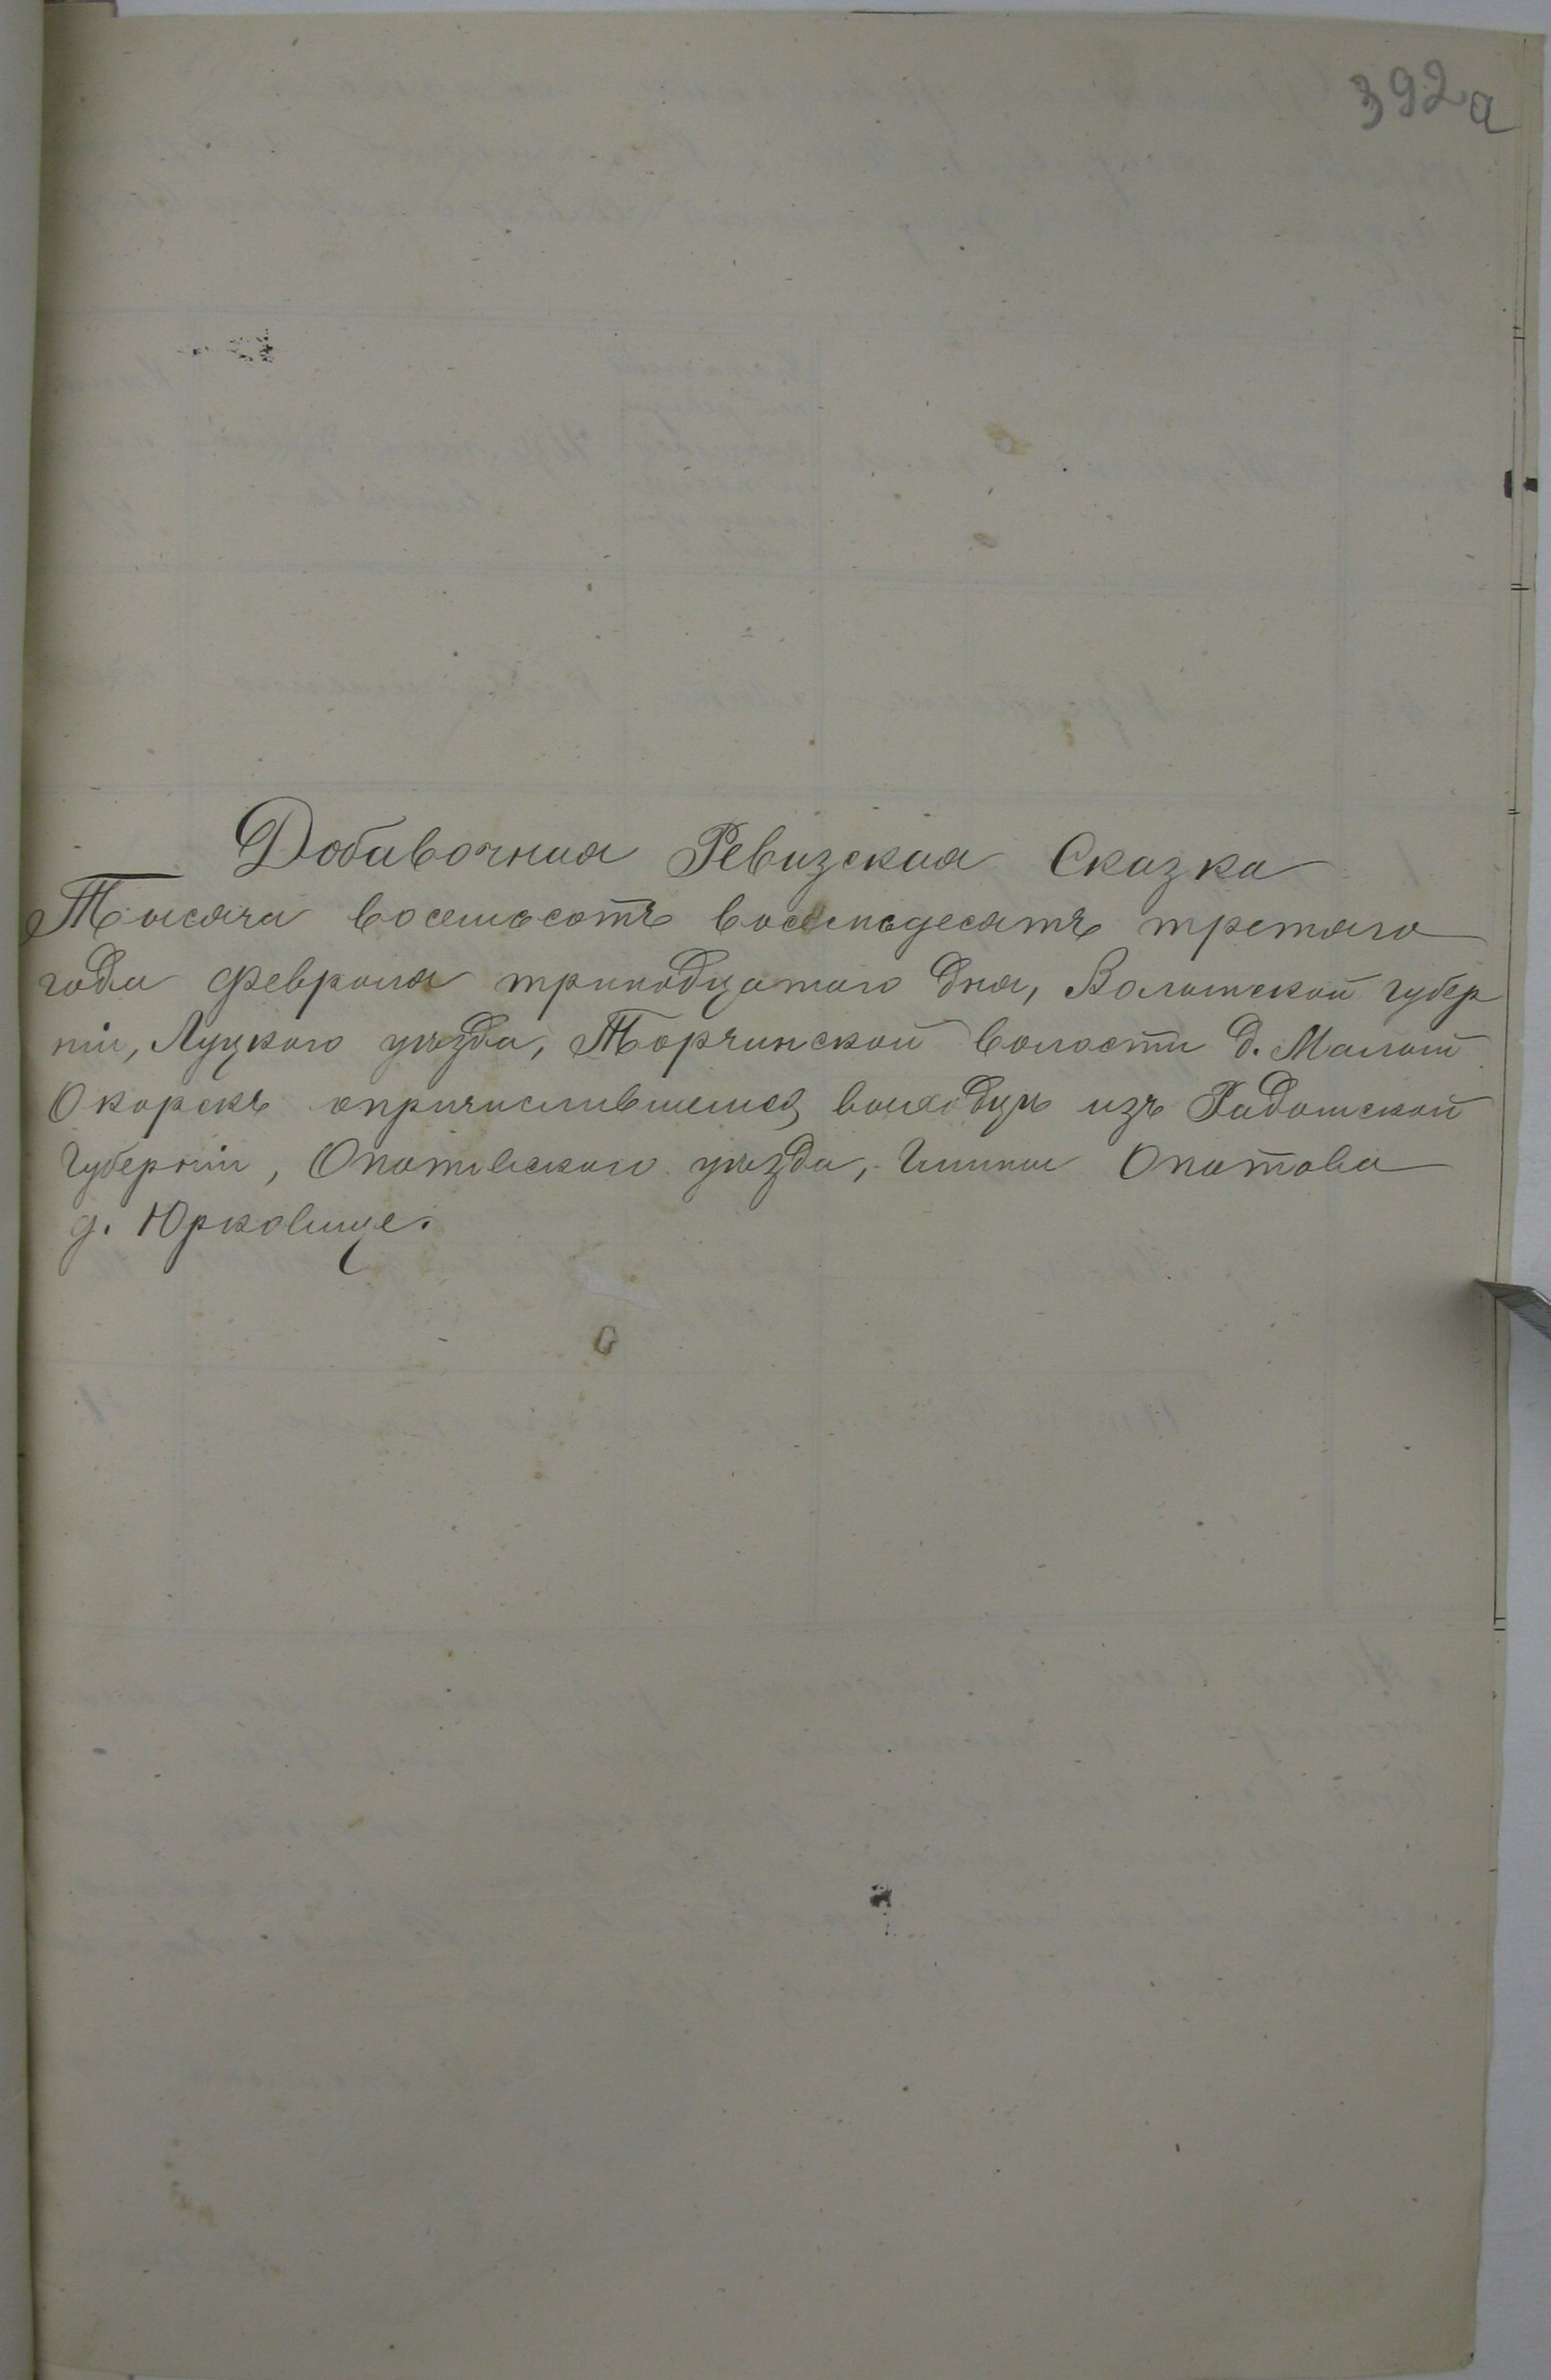 392а
Добавочная Ревизская Сказка
Тысяча восемьсотъ восемьдесятъ третяго
года Февраля тринадцатаго дня, Волынской губер
ніи, Луцкаго уѣзда, Торчинской волости д. Малый
Окорскъ опричислившемся выходцѣ изъ Радомской
Губерніи, Опатовскаго уѣзда, Гмины Опатова
д. Юрковице.